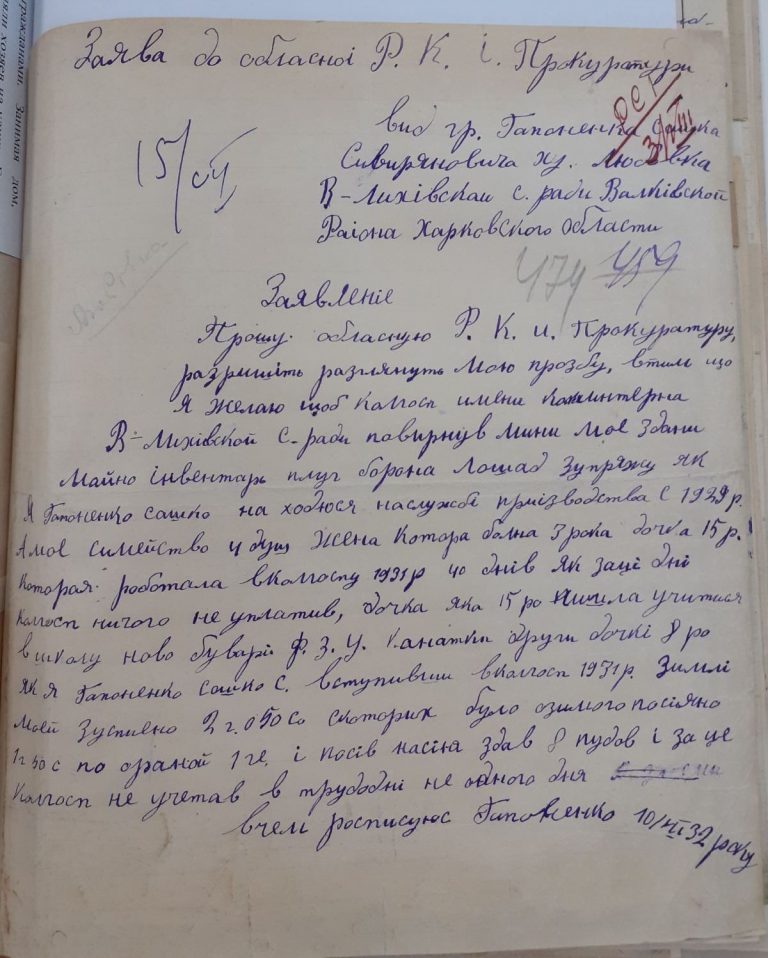 гражданами. Занимая дом,
Заява до обласної Р. К. І. Прокуратури
від гр. Гапоненка Сашка
Сивиряновича ху.
В-Лихівскаи с. ради Валківской
Раіона Харковского області
15/VI
474 459
Заявленіе
Прошу обласную Р. К. и. Прокуратуру,
разришіть разглянуть мою прозбу, втим що
я желаю щоб колгосп имени коминтерна
В-Лихівской с-ради повирнув мини мое здани
майно інвентарь плуг борона лошад зупряжу як
я Гапоненко сашко на ходюся наслужбі приізводства с 1929 р.
Амое симейство 4 душ жена котора болна 3 рока дочка 15 р.
которая роботала вколгоспу 1931 р 40 днів як заці дні
колгосп ничого не уплатив, дочка яка 15 ро учитися
в школу ново Ф. З. У. Канатки други дочкі 8 ро
як я Гапоненко сашко с. вступивши вколгосп 1931 р. Зимлі
моей 2 г. 050 со скотарих було озимого посіяно
1 г 50 с по ораной 1 ге. і посів насіня здав 8 пудов і за це
колгосп не учетав в трудодні не одного дня
вчем росписуюс Гапоненко 10/VI 32 року